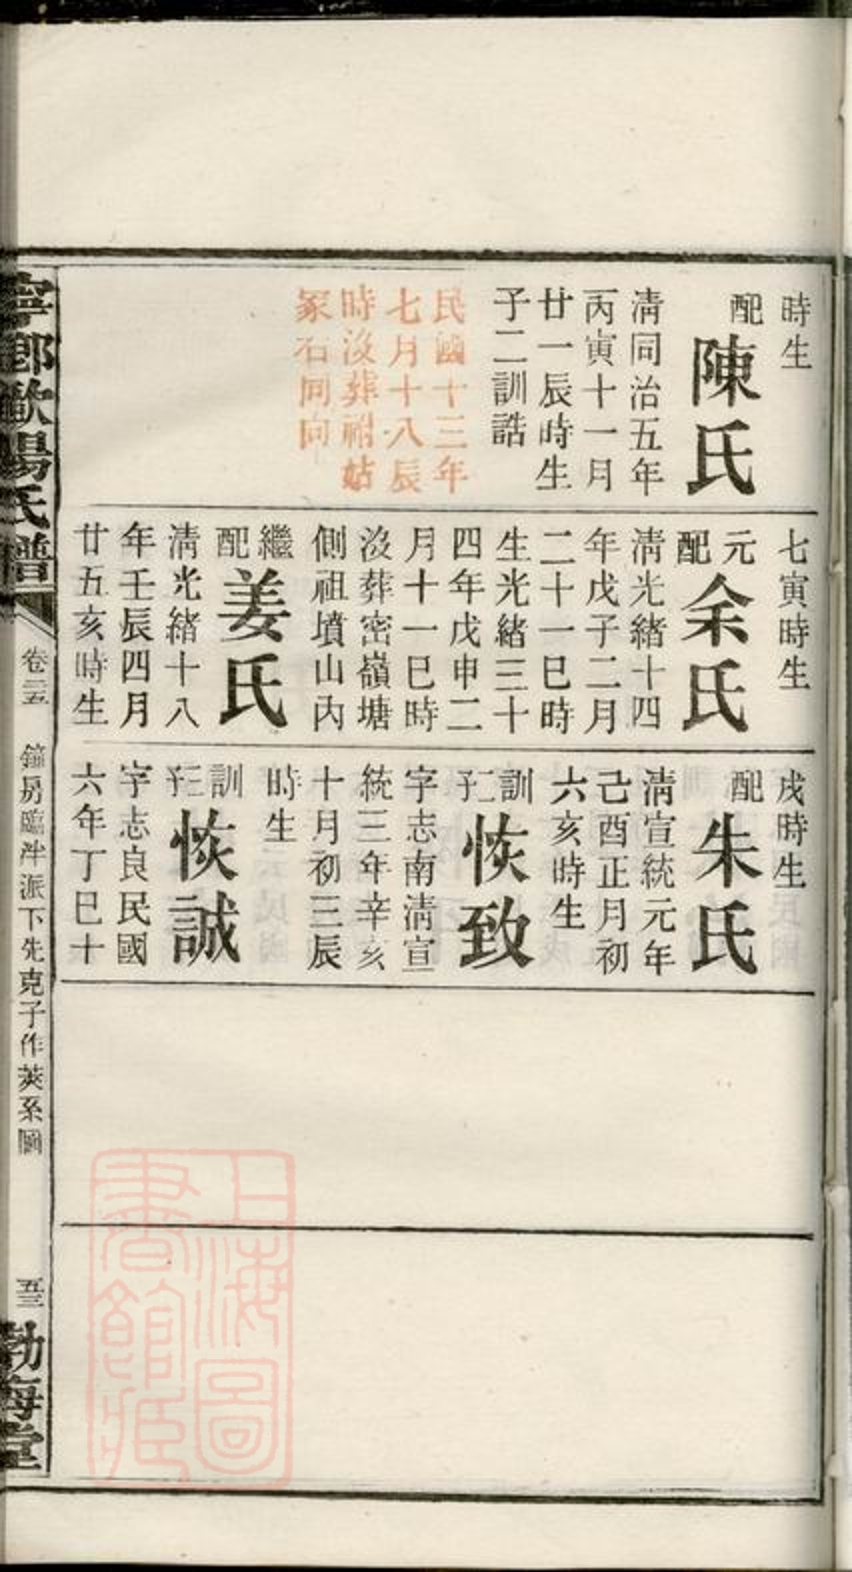 時生
配陳氏
清同治五年
丙寅十一月
廿一辰時生
子二訓誥
民國十三年
七月十八辰
時沒葬祔姑
冢右同向
七寅時生
元配余氏
清光緒十四
年戊子二月
二十一巳時
生光緒三十
四年戊申二
月十一巳時
沒葬密嶺塘
側祖墳山內
繼配姜氏
清光緒十八
年壬辰四月
廿五亥時生
戌時生
配朱氏
清宣統元年
己酉正月初
六亥時生
訓二子恢致
字志南清宣
統三年辛亥
十月初三辰
時生
訓三子恢誠
字志良民國
六年丁巳十
寧鄉歐陽氏譜
卷二五
鐘房臨泮派下先克子作莢系圖
五三
勃海堂
上海圖書館藏